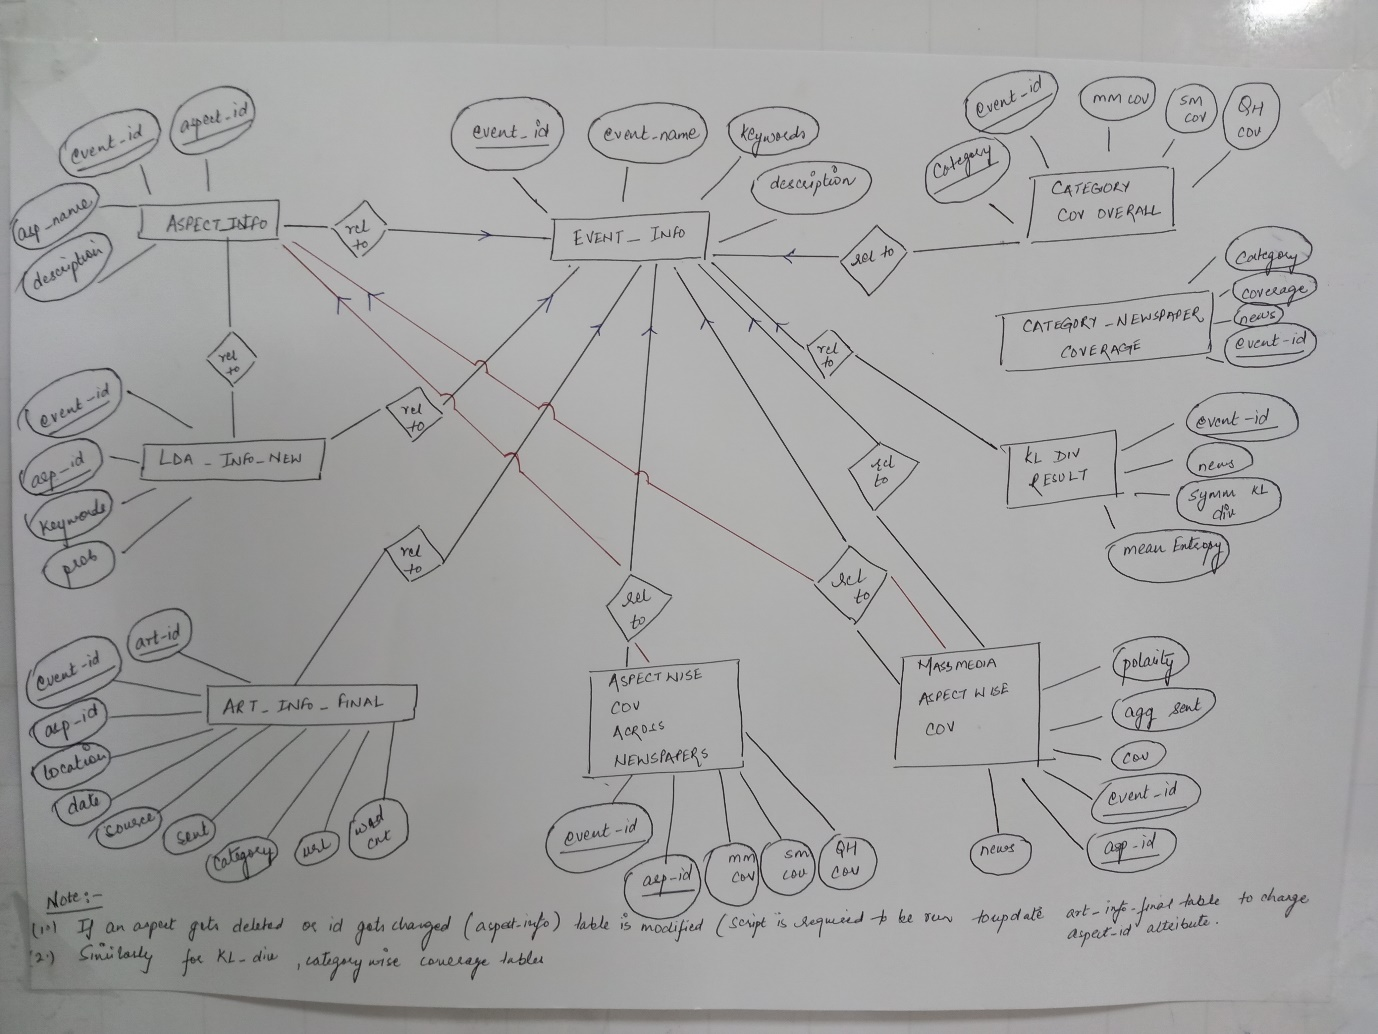 event_id
aspect_id
asp_name
description
ASPECT_INFO
rel
to
event_id
event_name
keywords
description
EVENT_INFO
event_id
mm cov
SM
COV
QH
COV
category
CATEGORY
COV OVERALL
rel to
category
coverage
news
event-id
CATEGORY_NEWSPAPER
COVERAGE
rel
to
rel
to
event-id
asp_id
keywords
prob
LDA_INFO_NEW
rel
to
rel
to
KL DIV
RESULT
event-id
news
symm KL
div
mean Entropy
rel
to
rel
to
rel
to
art-id
event_id
asp_id
location
date
source
sent
category
url
word
cnt
ART_INFO_FINAL
ASPECTWISE
COV
ACROSS
NEWSPAPERS
event-id
asp-id
mm
cov
SM
cov
QH
cov
MASSMEDIA
ASPECT WISE
COV
polarity
agg sent
cov
event_id
asp-id
news
Note:-
(1.) If an aspect gets deleted or id gets changed (aspect-info) table is modified (script is required to be run to update art_info_final table to change
aspect-id attribute.
(2.) Similarly for KL-div, categorywise coverage tables